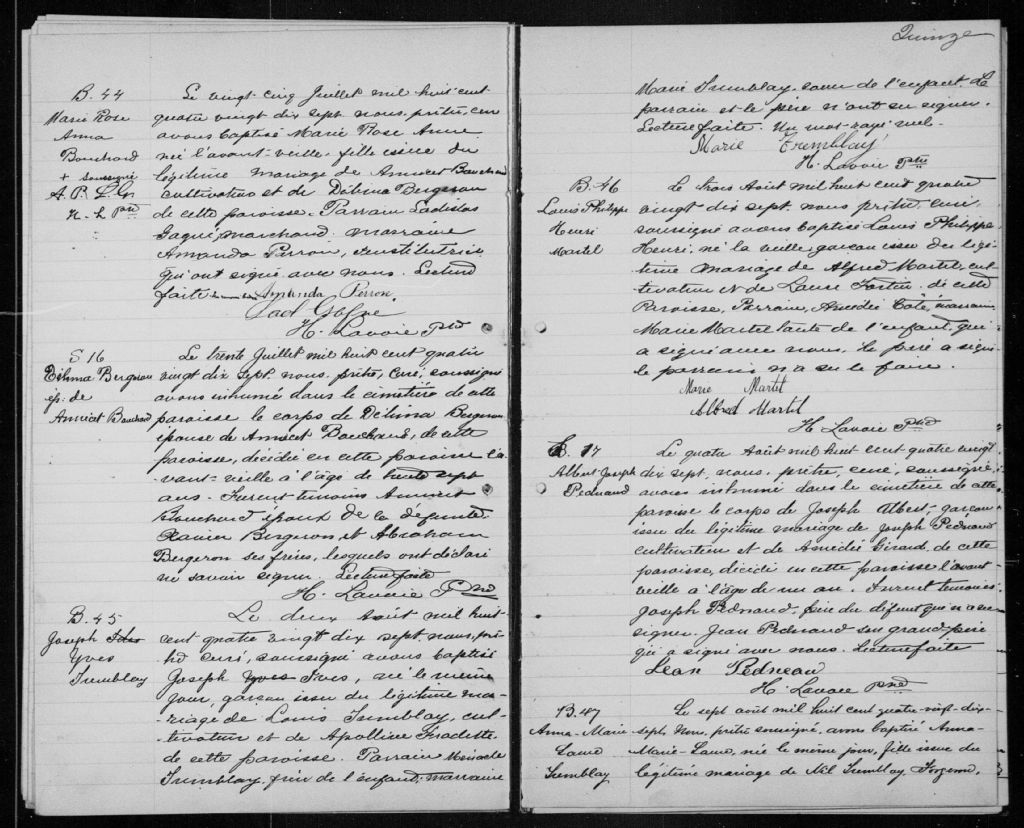 B. 44
Marie Rose
Anna
Bouchard
+ soussigné
A. P. L. G.
H. L Ptre
Le vingt-cinq Juillet mil huit cent
quatre vingt dix sept nous, prêtre, curé
avons baptisé Marie Rose Anna
née l'avant-veille, fille issue du
légitime mariage de Amicet Bouchard
cultivateur et de Délima Bergeron
de cette paroisse. Parrain Ladislas
Gagné, marchand, marraine
Amanda Perron, institutrice
qui ont signé avec nous. Lecture
faite Amanda Perron.
Lad Gagné
H. Lavoie Ptre
S 16
Délima Bergeron
ép. de
Amicet Bouchard
Le trente Juillet mil huit cent quatre
vingt dix sept nous, prêtre, curé, soussigné
avons inhumé dans le cimetière de cette
paroisse le corps de Délima Bergeron
épouse de Amicet Bouchard, de cette
paroisse, décédée en cette paroisse l'a-
vant-veille à l'âge de trente sept
ans. Furent témoins Amicet
Bouchard époux de la défunte,
Xavier Bergeron, et Abraham
Bergeron ses frères, lesquels ont déclaré
ne savoir signer. Lecture faite
H. Lavoie Ptre
B. 45
Joseph
Yves
Tremblay
Le deux Août mil huit-
cent quatre vingt dix sept nous, prê-
tre curé, soussigné avons baptisé
Joseph Yves Yves, né le même
jour, garçon issu du légitime ma-
riage de Louis Tremblay, cul-
tivateur et de Apolline Fradette
de cette paroisse. Parrain
Tremblay, frère de l'enfant, marraine
Quinze
Marie Tremblay, soeur de l'enfant. Le
parrain et le père n'ont su signer.
Lecture faite. Un mot rayé nul.
Marie Tremblay
H. Lavoie Ptre
B. 46
Louis Philippe
Henri
Martel
Le trois Août mil huit cent quatre
vingt dix sept, nous prêtre, curé
soussigné avons baptisé Louis Philippe
Henri, né la veille, garçon issu du légi-
time mariage de Alfred Martel, cul-
tivateur et de Laure Fortin de cette
Paroisse, Parrain, Amédée Côté, marraine
Marie Martel tante de l'enfant, qui
a signé avec nous, le père a signé
le parrain n'a su le faire.
Marie Martel
Alfred Martel
H Lavoie Ptre
S. 17
Albert Joseph
Pednaud
Le quatre Août mil huit cent quatre vingt
dix sept, nous, prêtre, curé, soussigné,
avons inhumé dans le cimetière de cette
paroisse le corps de Joseph Albert, garçon
issu du légitime mariage de Joseph Pednaud
cultivateur et de Amédie Girard, de cette
paroisse, décédé en cette paroisse l'avant-
veille à l'âge de un an. Furent témoins
Joseph Pednaud, père du défunt qui n'a su
signer. Jean Pednaud son grand-père
qui a signé avec nous. Lecture faite
Jean Pedneau
H. Lavoie Ptre
B. 47
Anna-Marie
Laure
Tremblay
Le sept août mil huit cent quatre-vingt-dix-
sept, Nous, prêtre soussigné, avons baptisé Anna-
Marie-Laure, née le même jour, fille issue du
légitime mariage de Nil Tremblay, Forgeron,